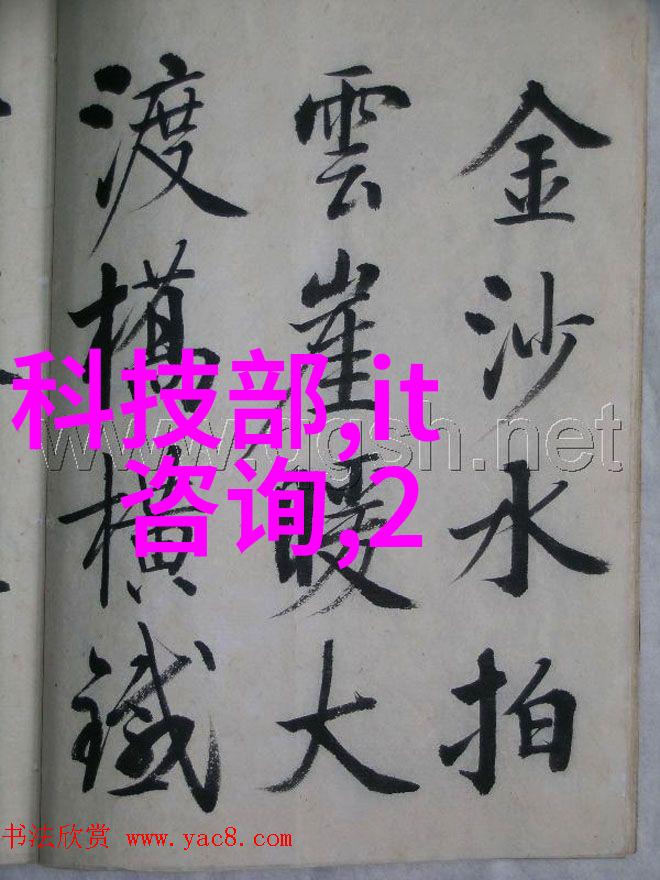 金沙水拍
雲崖暖大
渡橋橫鐵
科技部,it
咨询,2
书法欣赏 www.yac8.com